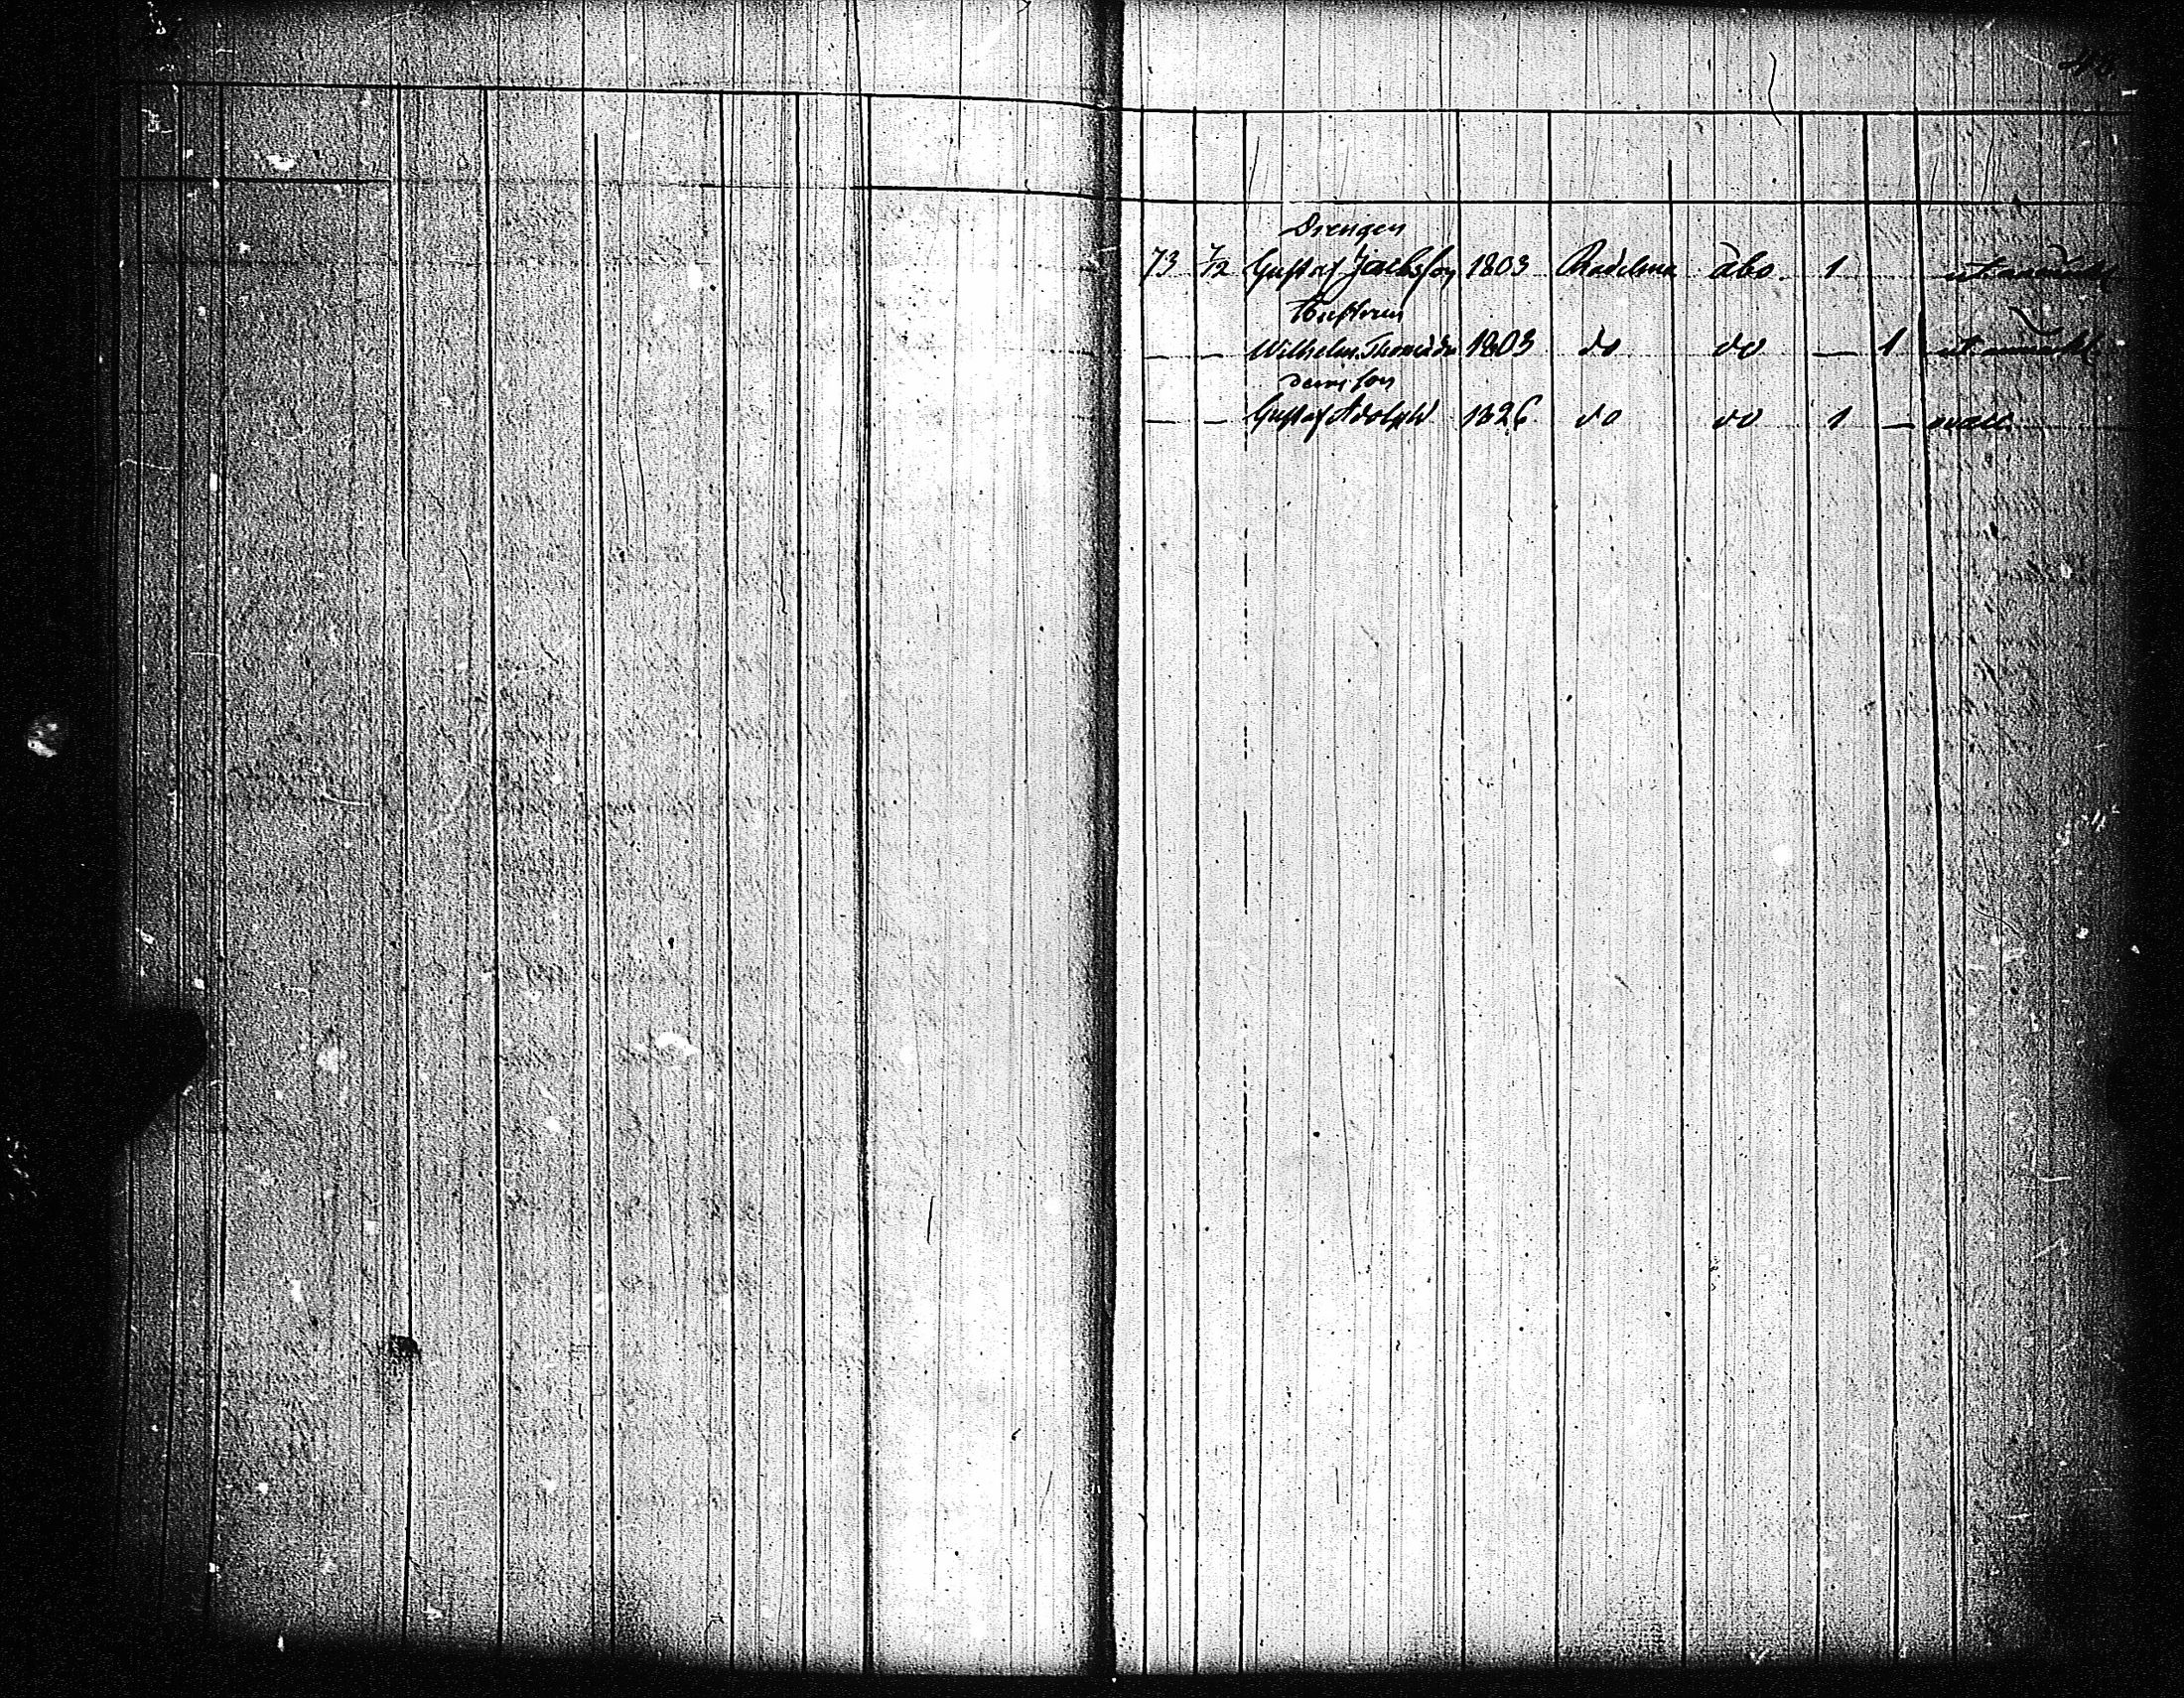 Drengen
73 1/2 Gustaf Jacobsson 1803 Raděelma Åbo. 1
Hustrun
— — Wilhelm. Thomasdr 1803 do do — 1
deras son
— — Gustaf Adolph 1826 do do 1 — vacc.